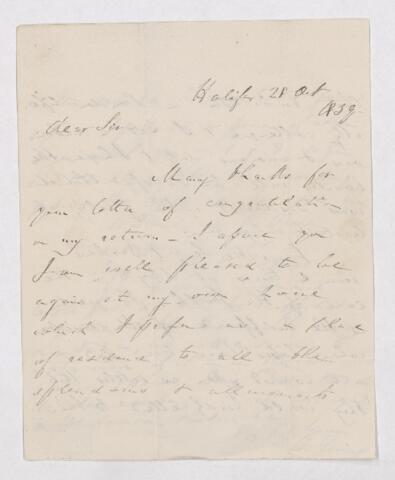 Halifax 28 Oct
1839
Dear Sir
Many thanks for
your letter of congratulation
on my return - I assure you
I am well pleased to be
again at my own home
which I prefer as a place
of residence to all the
splendours &